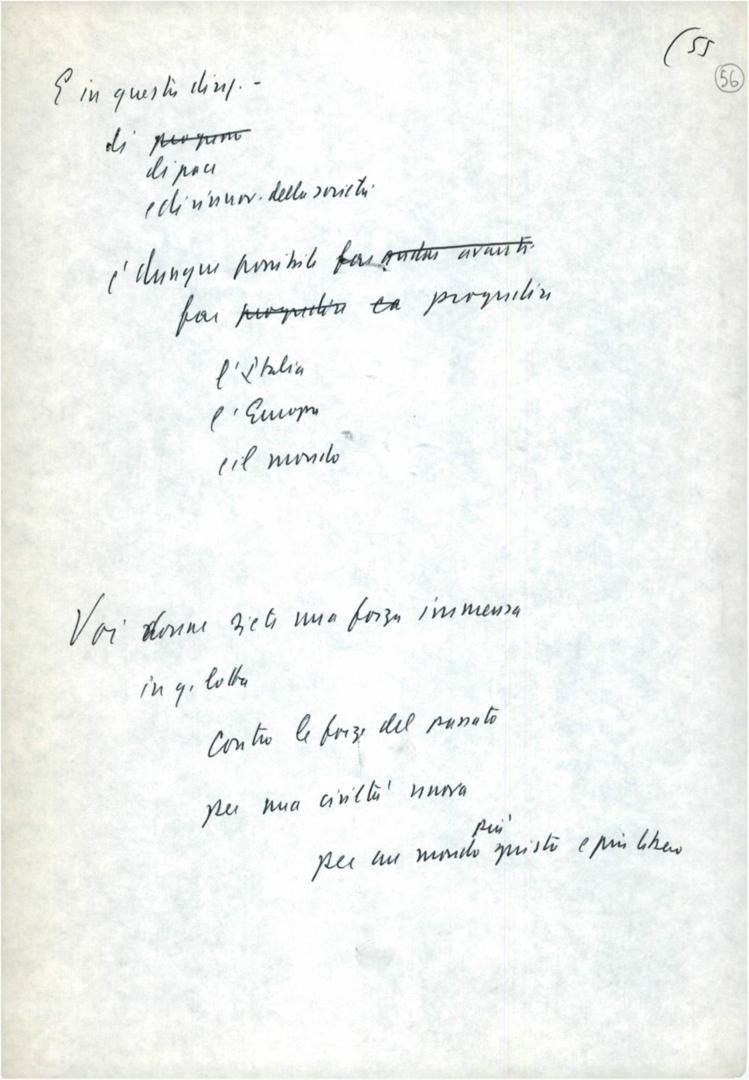 (55
56
E in questi disp. -
di progresso
di pace
e di rinnov. della società
e' dunque possibile far andar avanti
far progredire ea progredire
l'Italia
l'Europa
e il mondo
Voi donne siete una forza immensa
in q. lotta
contro le forze del passato
per una civiltà nuova
per un mondo più giusto e più libero